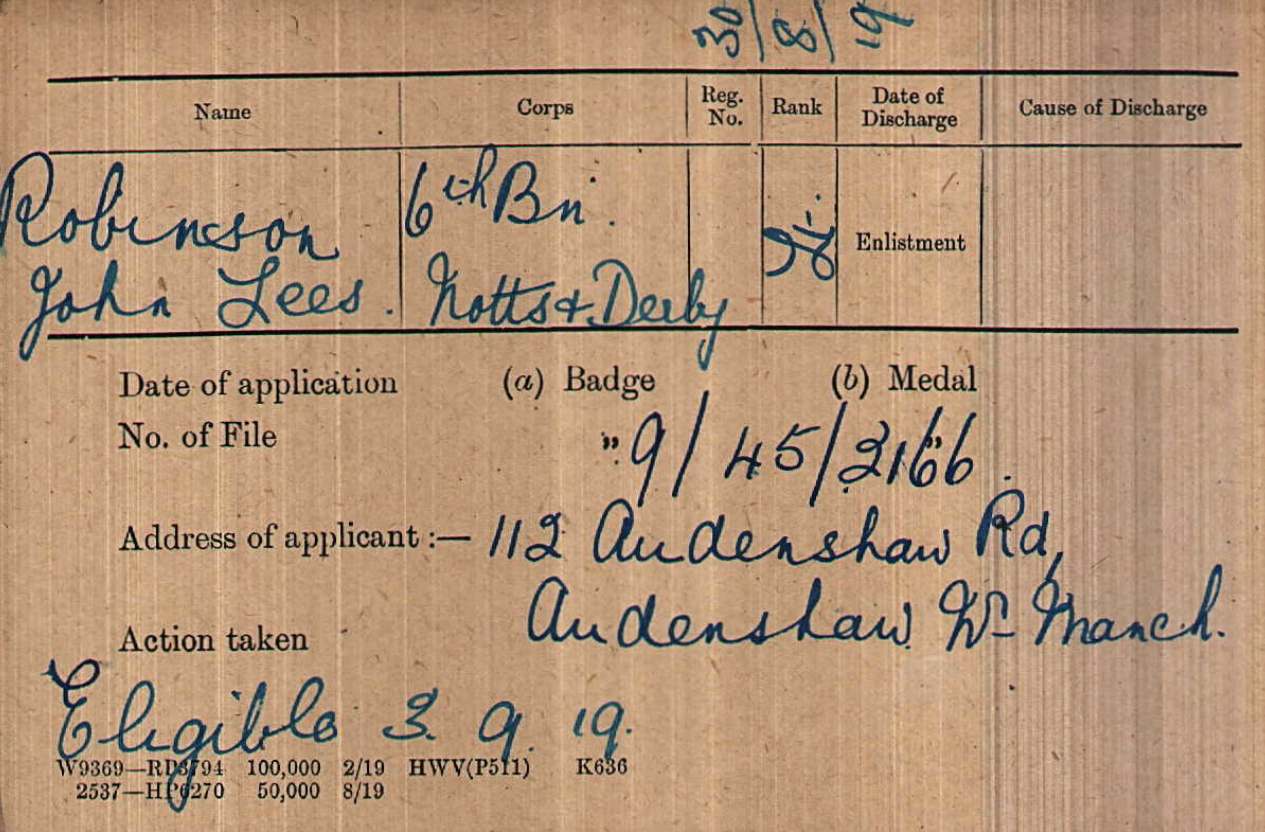 30/8/19
Name Corps Reg. No. Rank Date of Discharge Cause of Discharge
Robinson 6th Bn.
Enlistment
John Lees. Notts & Derby
Date of application (a) Badge (b) Medal
No. of File " 9/45/2166 "
Address of applicant :— 112 Audenshaw Rd,
Audenshaw Nr Manch.
Action taken
Eligible 3. 9. 19.
W9369—RP3794 100,000 2/19 HWV(P511) K636
2537—HP6270 50,000 8/19